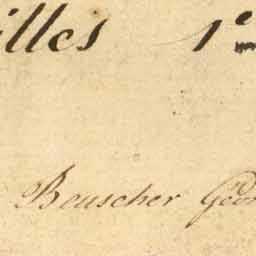 illes 1e
Beuscher Geor